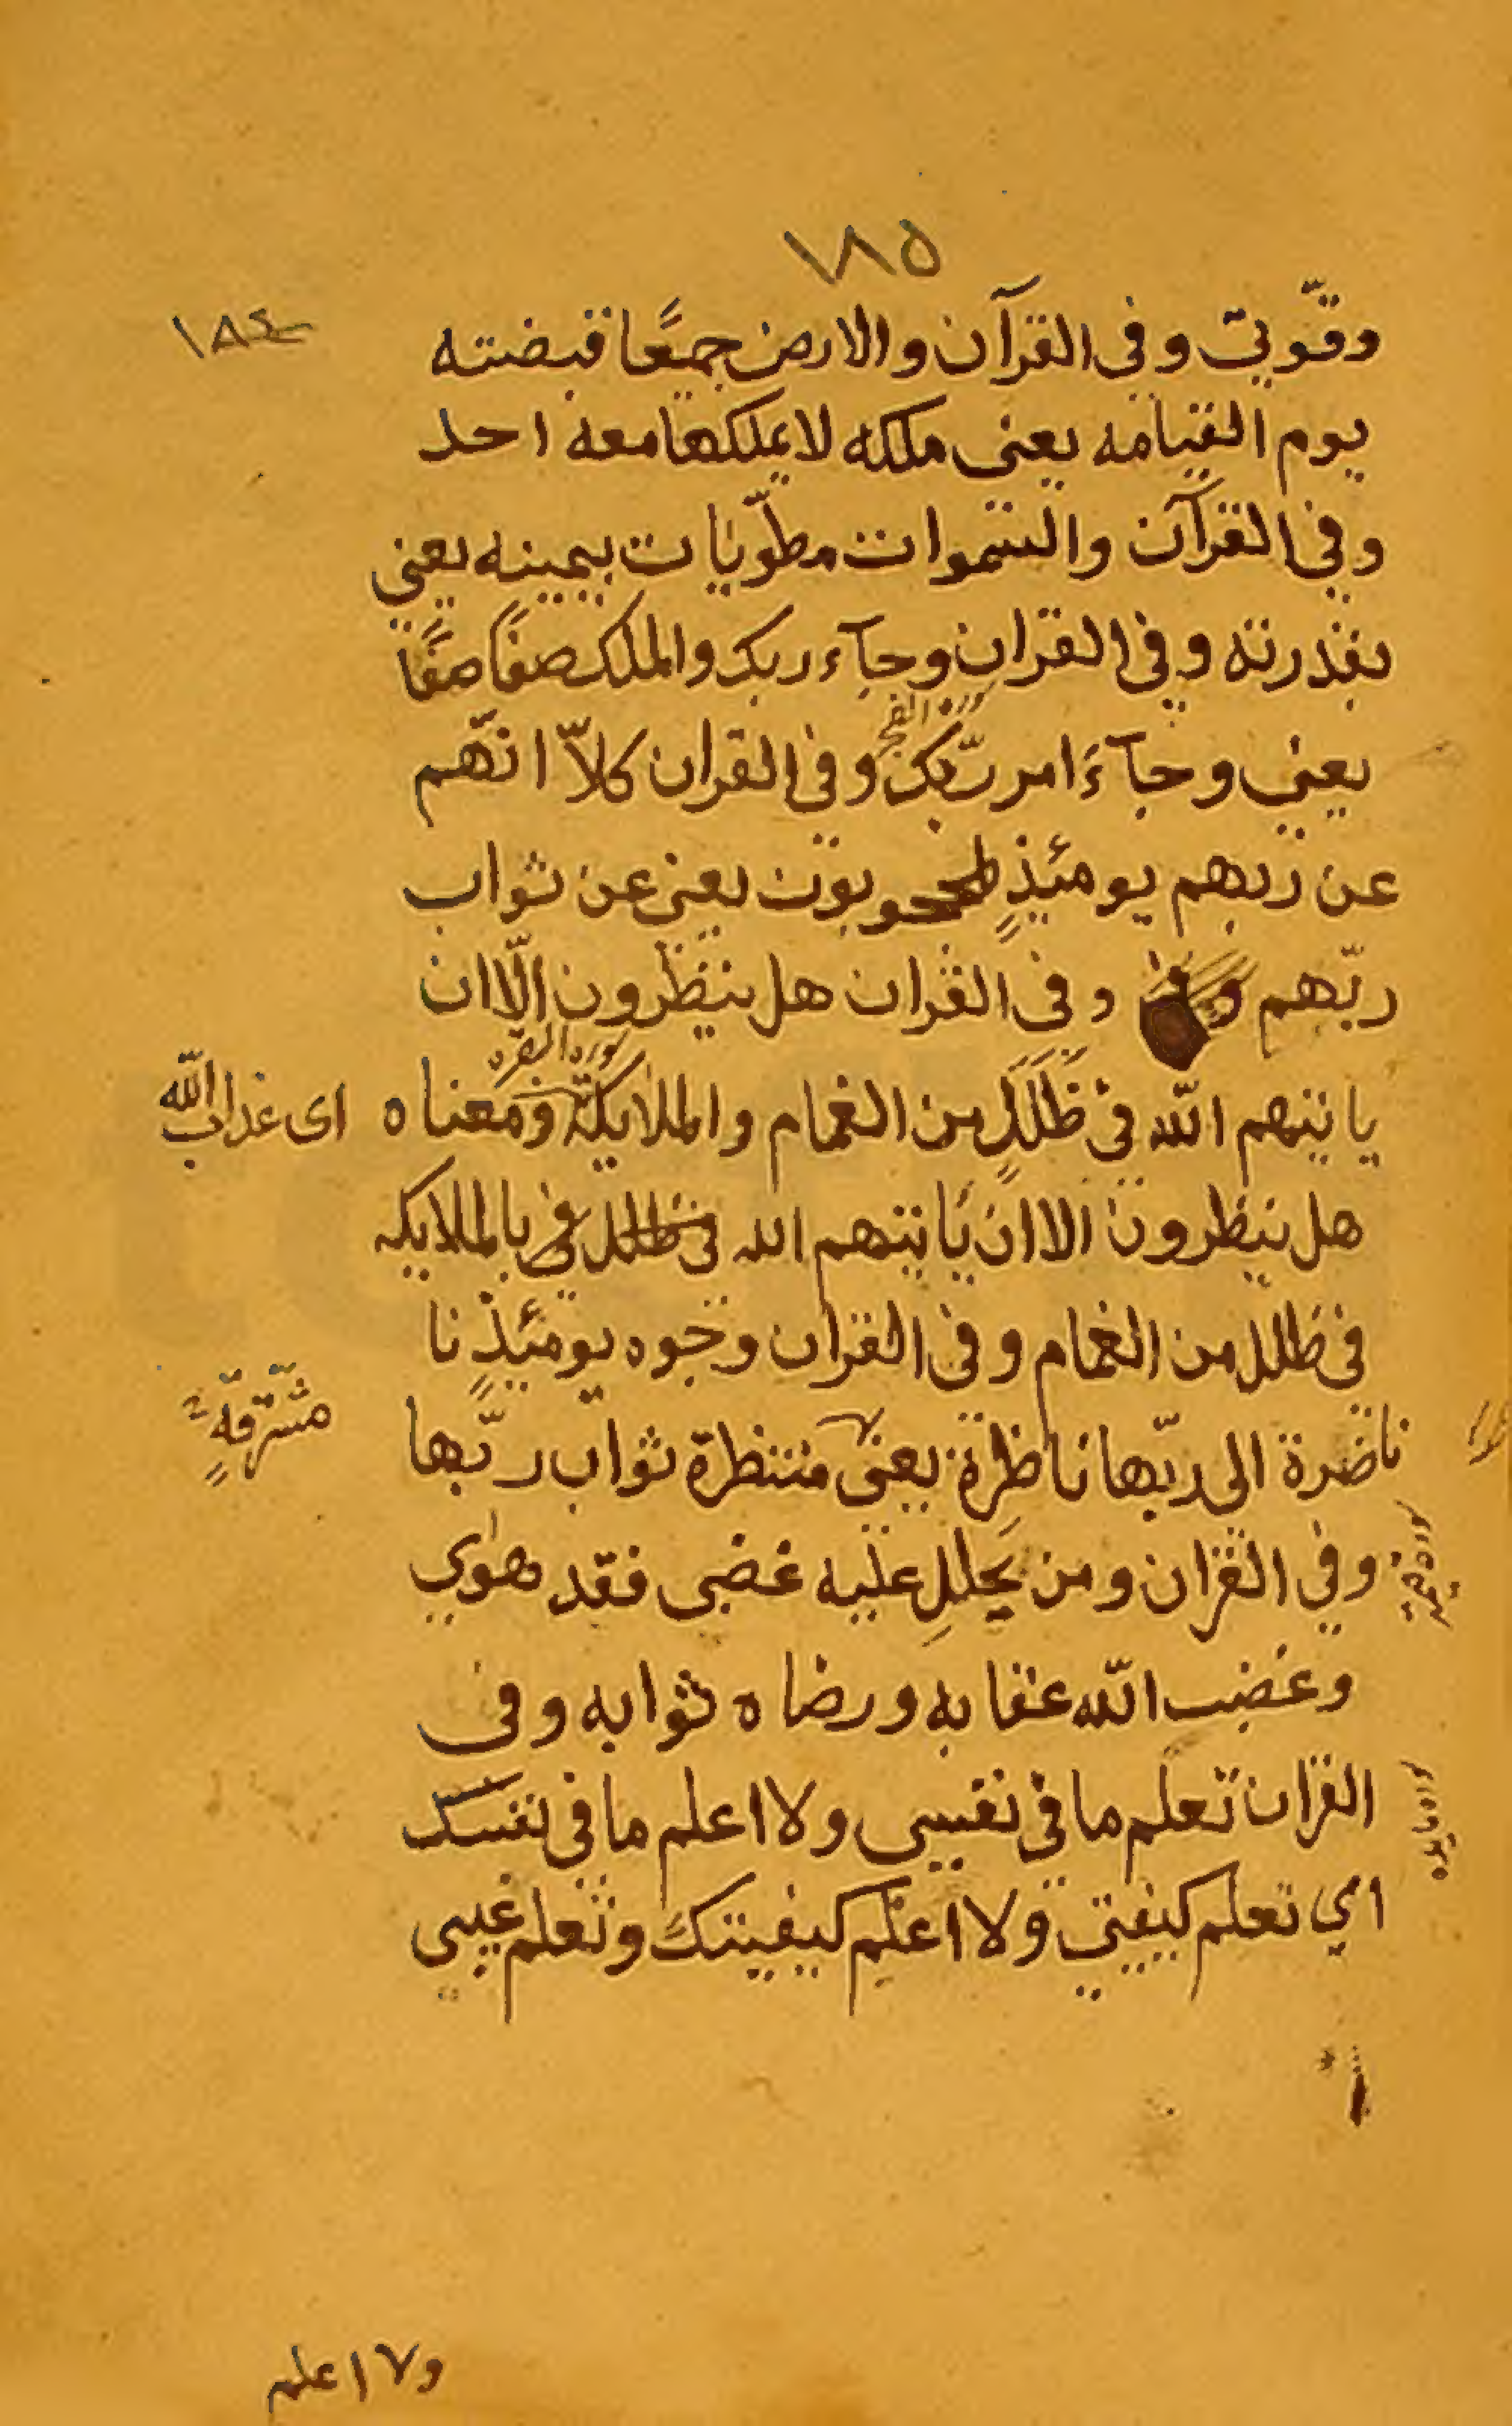 ١٨٥
١٨٤
وقوّتي وفي القرآن والارض جميعًا قبضته
يوم القيامه يعنى ملكه لا يملكها معه احد
وفي القرآن والسّموات مطوّيات بيمينه يعني
بقدرته وفي القران وجآء ربك والملك صفًا صفًا
يعني وجآءَ امر ربّك وفى القران كلاّ انّهم
سورة الفجر
عن ربهم يومئذٍ لمحجوبون يعنى عن ثواب
ربّهم وفى القران هل ينظرون الّا ان
سوره البقره
ياتيهم اللّه في ظُلَلٍ من الغمام والملايكة ومعناه
اى عذاب اللّه
هل ينظرون الا ان يَاتيهم الله في ظلل في بالملايكه
في ظلل من الغمام وفي القران وجوه يومئذٍ نا
ناضرة الى ربّها ناظرة يعنى منتظرة ثواب ربّها
مشرقةٍ
وفي القران ومن يحللِ عليه غضبى فقد هوٰي
وغضب اللّه عقابه ورضاه ثوابه وفى
القران تعلم ما في نفسي ولا اعلم ما في نفسك
اي تعلم كيفيتي ولا اعلم كيفيتك وتعلم غيبى
ولا اعلم